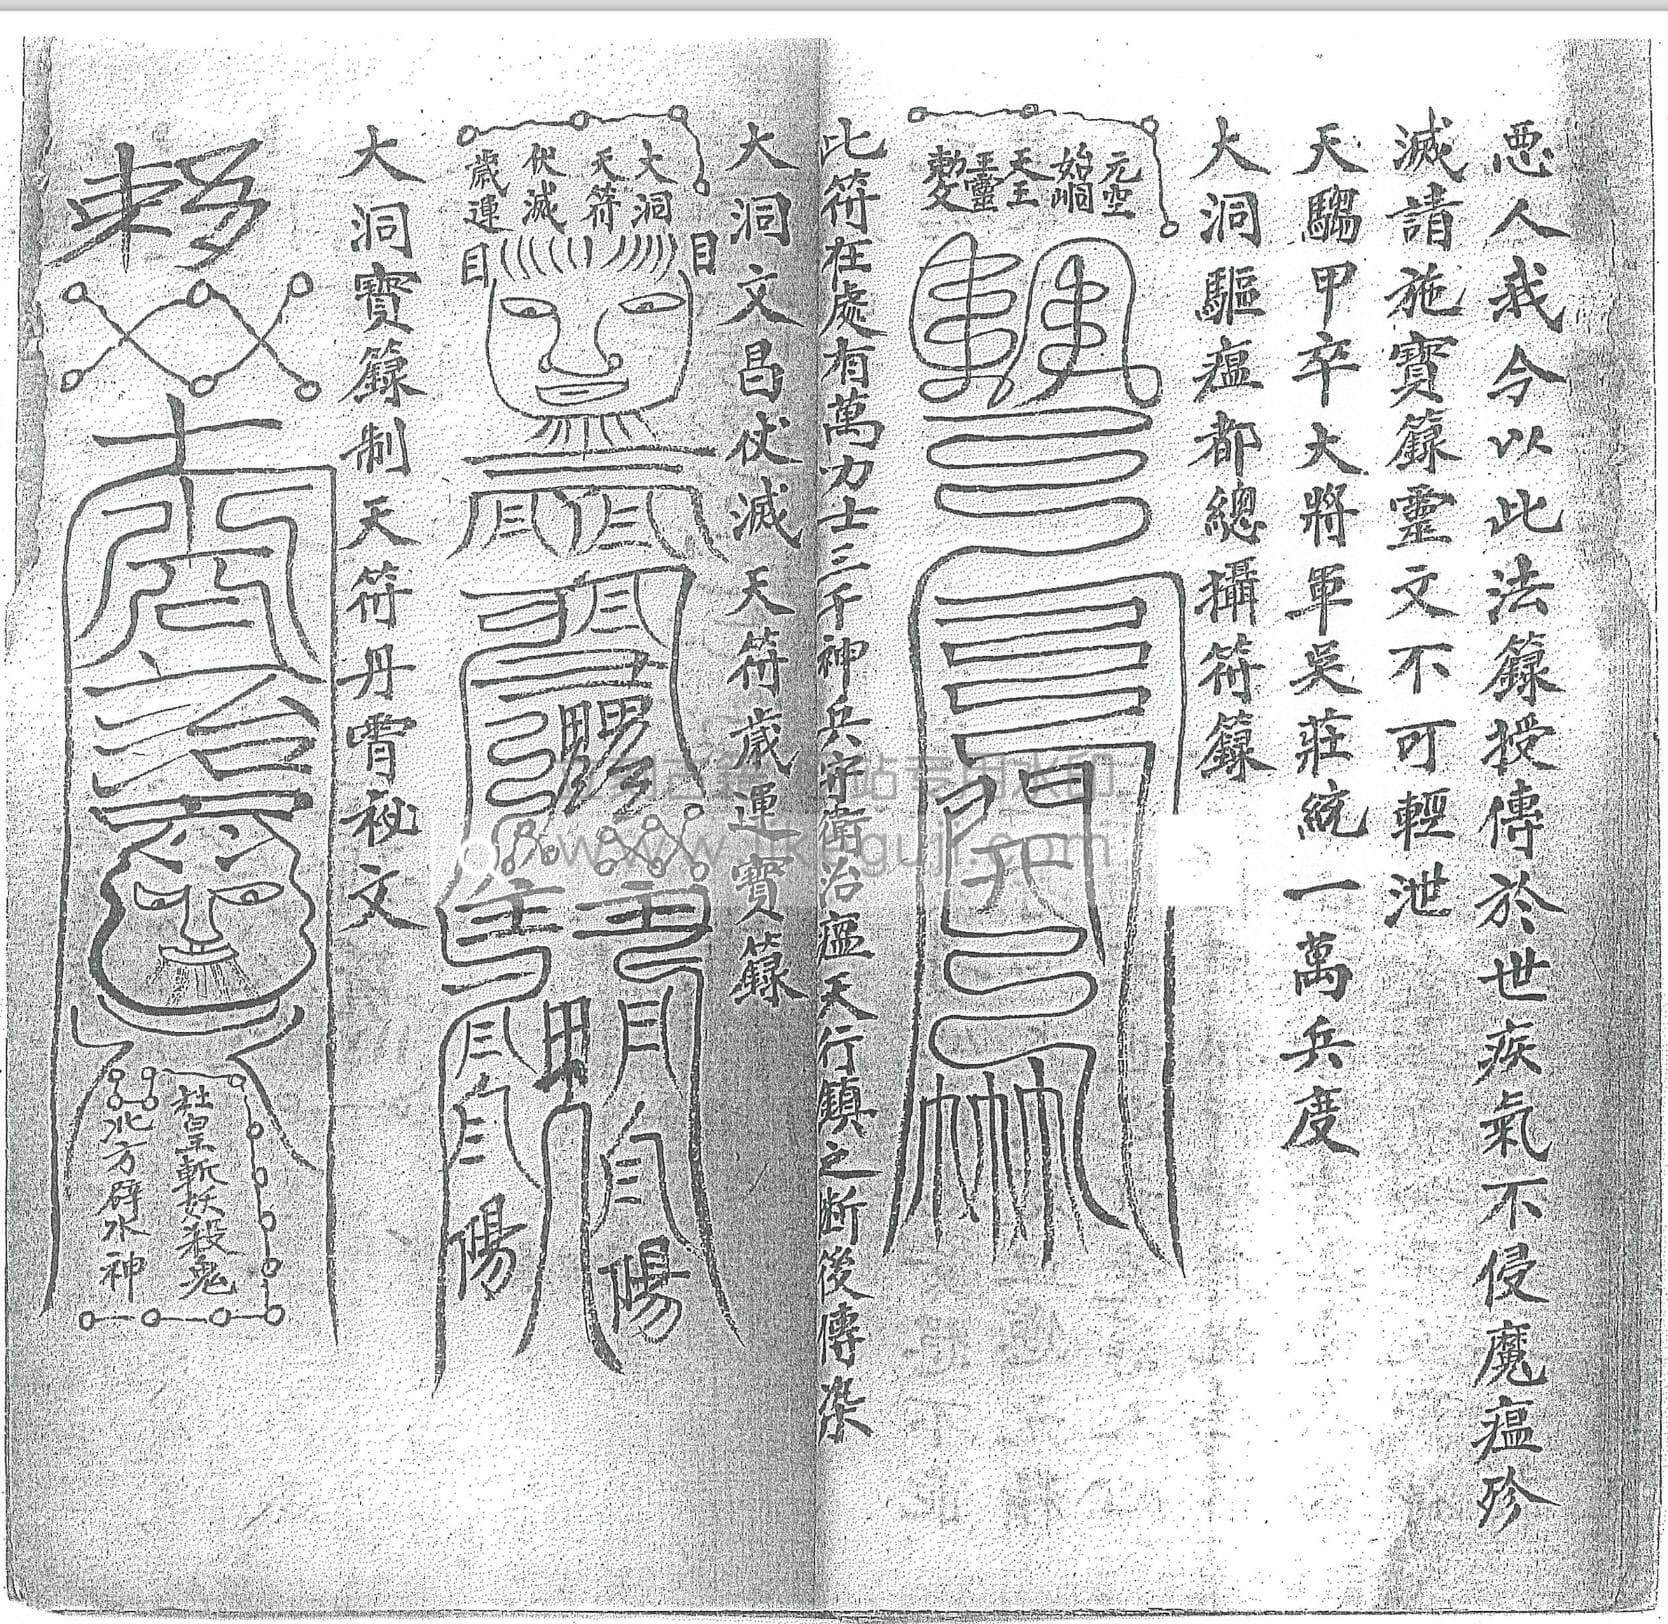 恶人我今以此法籙授傳於世疾氣不侵魔瘟殄
滅請施寶籙靈文不可輕泄
天騶甲卒大將軍吴莊統一萬兵度
大洞驅瘟都總攝符籙
元空
始
天王
靈
敕
此符在處有萬力士三千神兵守衛治瘟天行鎮之断後傳染
大洞文昌伏滅天符歲運寶籙
大洞
天符
伏滅
歲運
目
目
賜
明
陽
陽
大洞寶籙制天符丹霄秘文
敕
治
皇斬妖殺鬼
北方壁水神
www.
guji.com